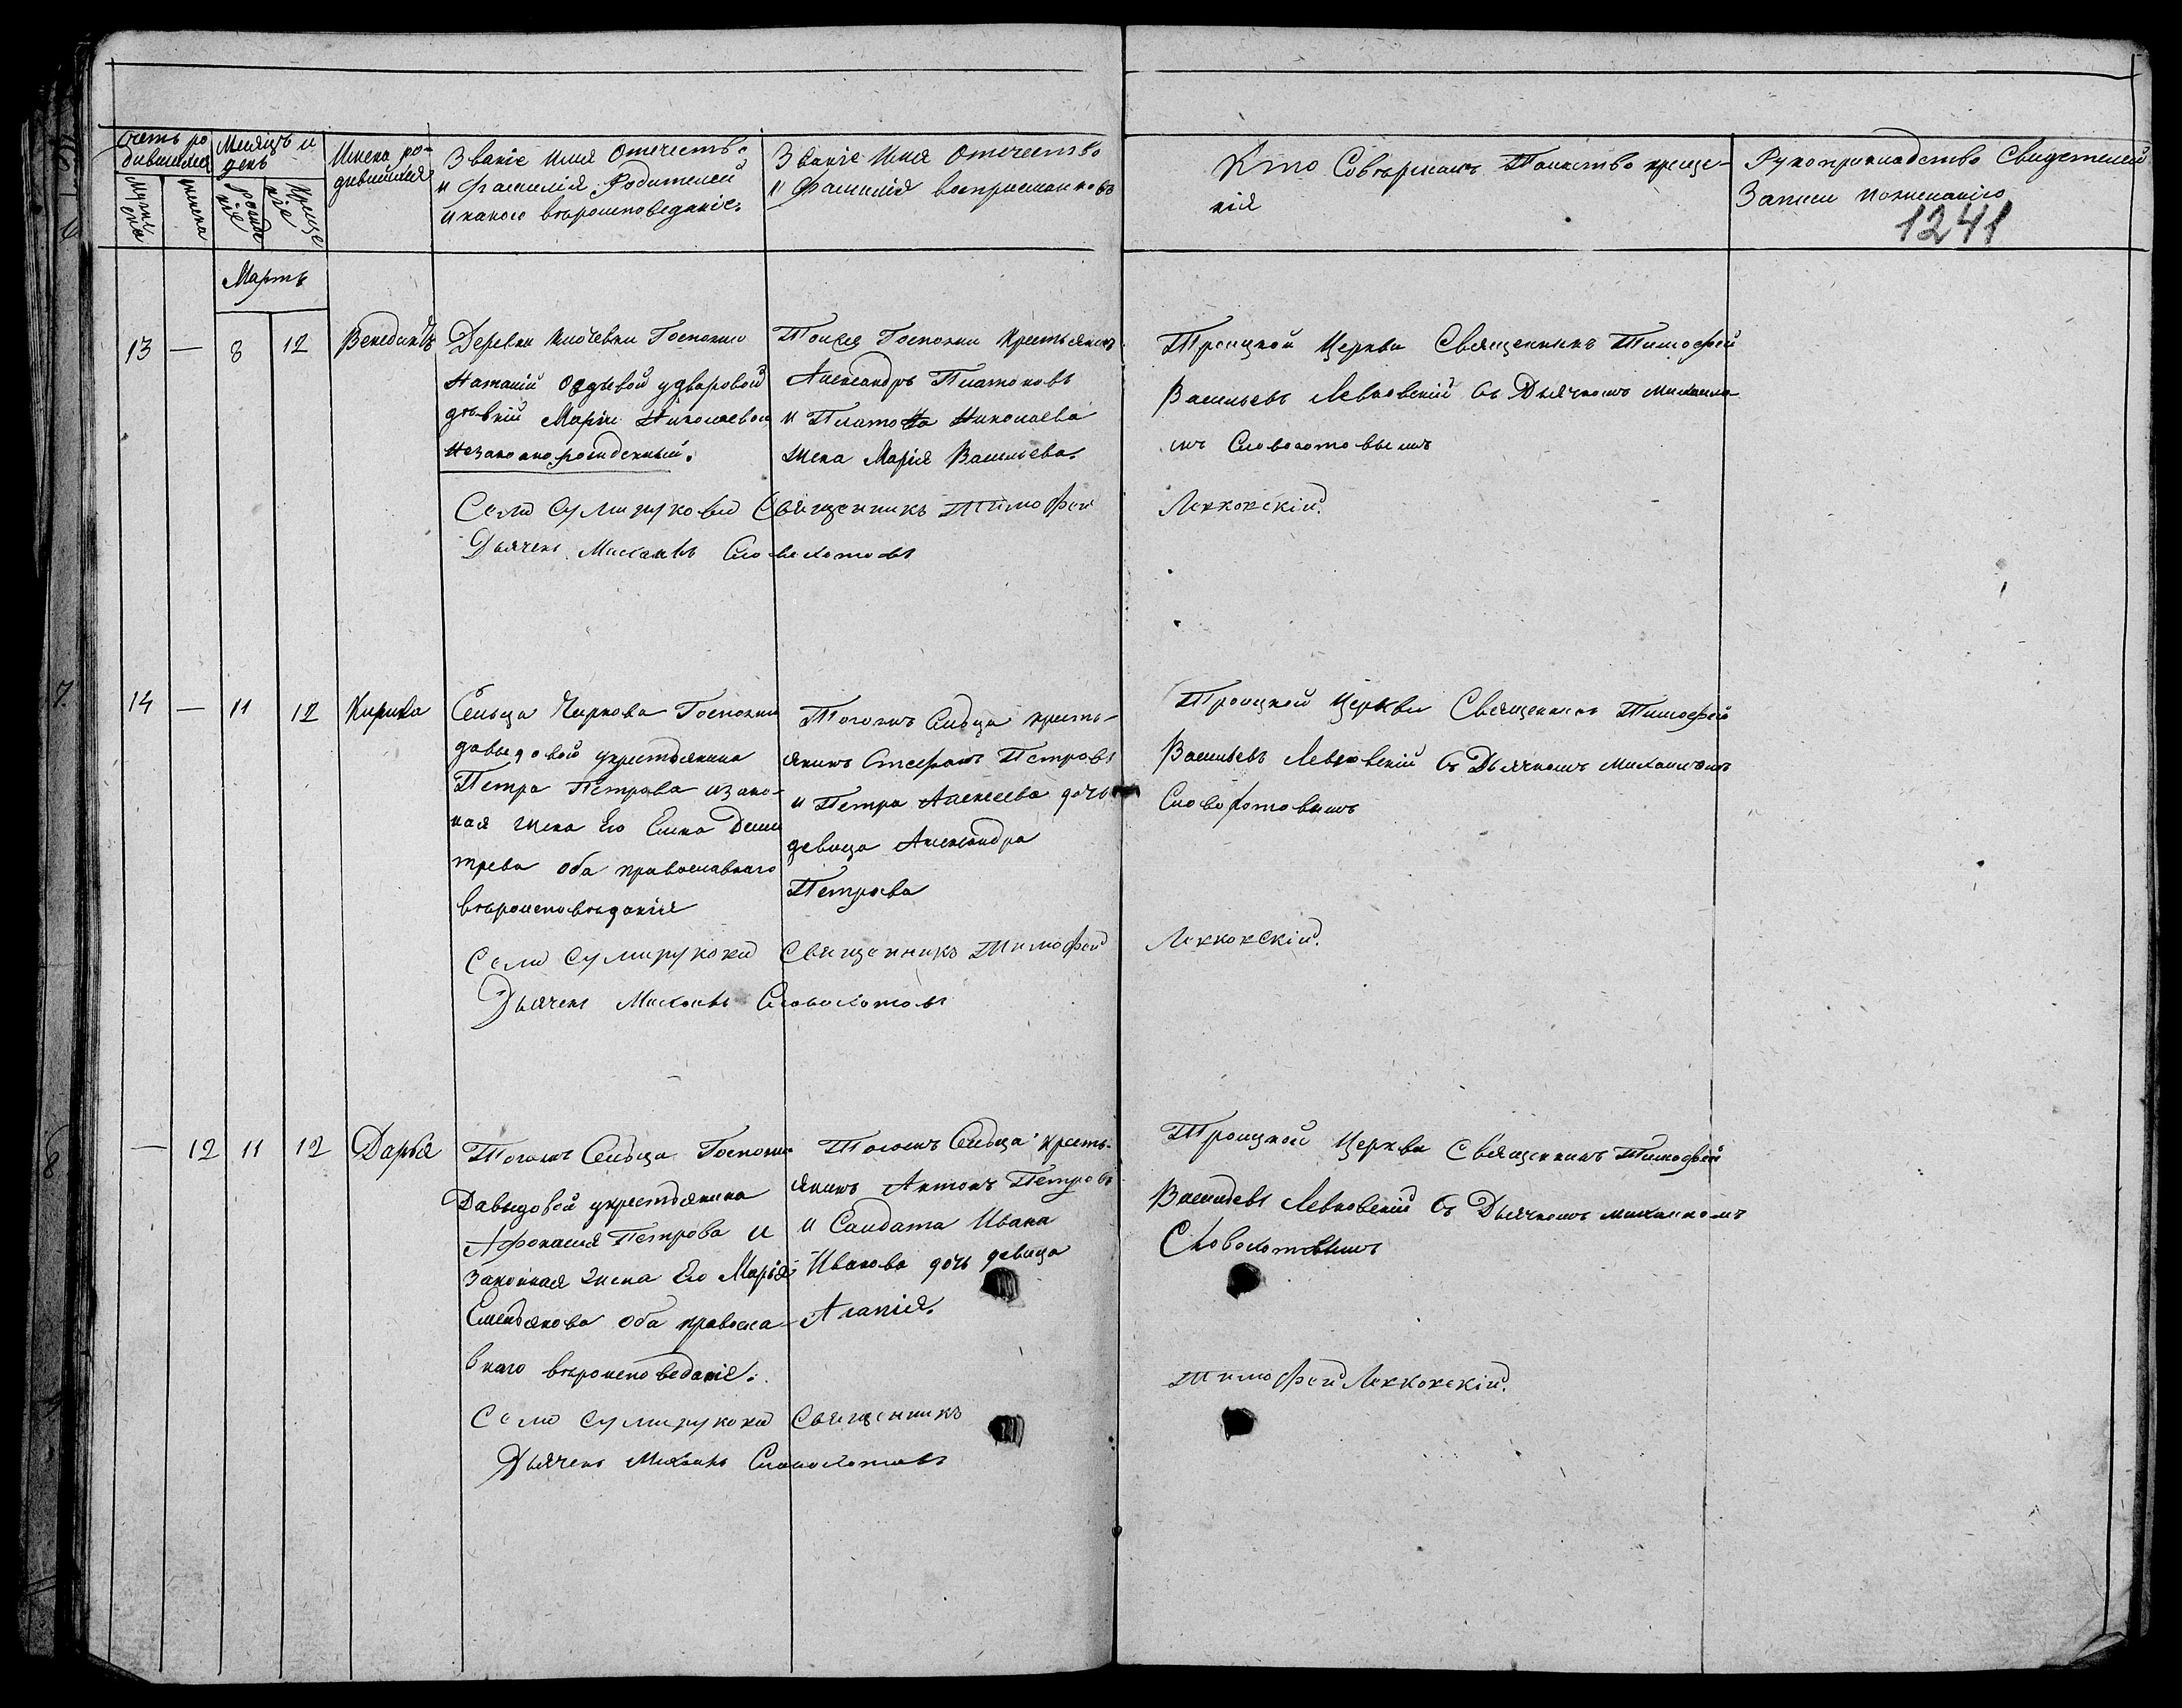 Счетъ ро
дившихся
Мужс
ска
женска
Месяцъ и
день
рожде
нія
Креще
нія
Имена ро-
дившихся
Званіе Имя Отечество
и Фамилія Родителей
и какого вероисповеданія.
Званіе Имя Отечество
и Фамилія восприемниковъ
Кто Совершалъ Таинство креще-
нія
Рукоприкладство Свидетелей
Записи по желанію
1241
Мартъ
13 — 8 12 Венедиктъ
Деревни Госпожи
Наталіи удворовой
девкій Маріи Николаевой
незаконорожденный.
Тоя же Госпожи Крестьянинъ
Александръ Платоновъ
и Платона Николаева
жена Марія Васильева.
Троицкой Церкви Священникъ Тимофей
Васильевъ Левковскій съ Дьячкомъ Михаило
мъ Словохотовымъ
Села Священникъ Тимофей Левковскій.
Дьячекъ Михаилъ Словохотовъ
14 — 11 12 Кирила
Сельца Чиркова Госпожи
давыдовой укрестьянина
Петра Петрова изако-
ная жена Его Елена Дими
трева оба православнаго
вероисповеданія
Тогожъ Сельца кресть-
янинъ Стефанъ Петровъ
и Петра Алексеева дочь
девица Александра
Петрова
Троицкой Церкви Священникъ Тимофей
Васильевъ Левковскій съ Дьячкомъ Михаиломъ
Словохотовымъ
Села Священникъ Тимофей Левковскій.
Дьячекъ Михаилъ Словохотовъ
— 12 11 12 Дарья
Тогожъ Сельца Госпожи
Давыдовой укрестьянина
Афонасия Петрова и
Законная жена Его Марья
оба правосла-
внаго вероисповеданія.
Тогожъ Сельца кресть-
янинъ Антонъ Петровъ
и Салдата Ивана
Иванова дочь девица
Агапія.
Троицкой Церкви Священникъ Тимофей
Васильевъ Левковскій съ Дьячкомъ Михаиломъ
Словохотовымъ
Села Священникъ Тимофей Левковскій.
Дьячекъ Михаилъ Словохотовъ